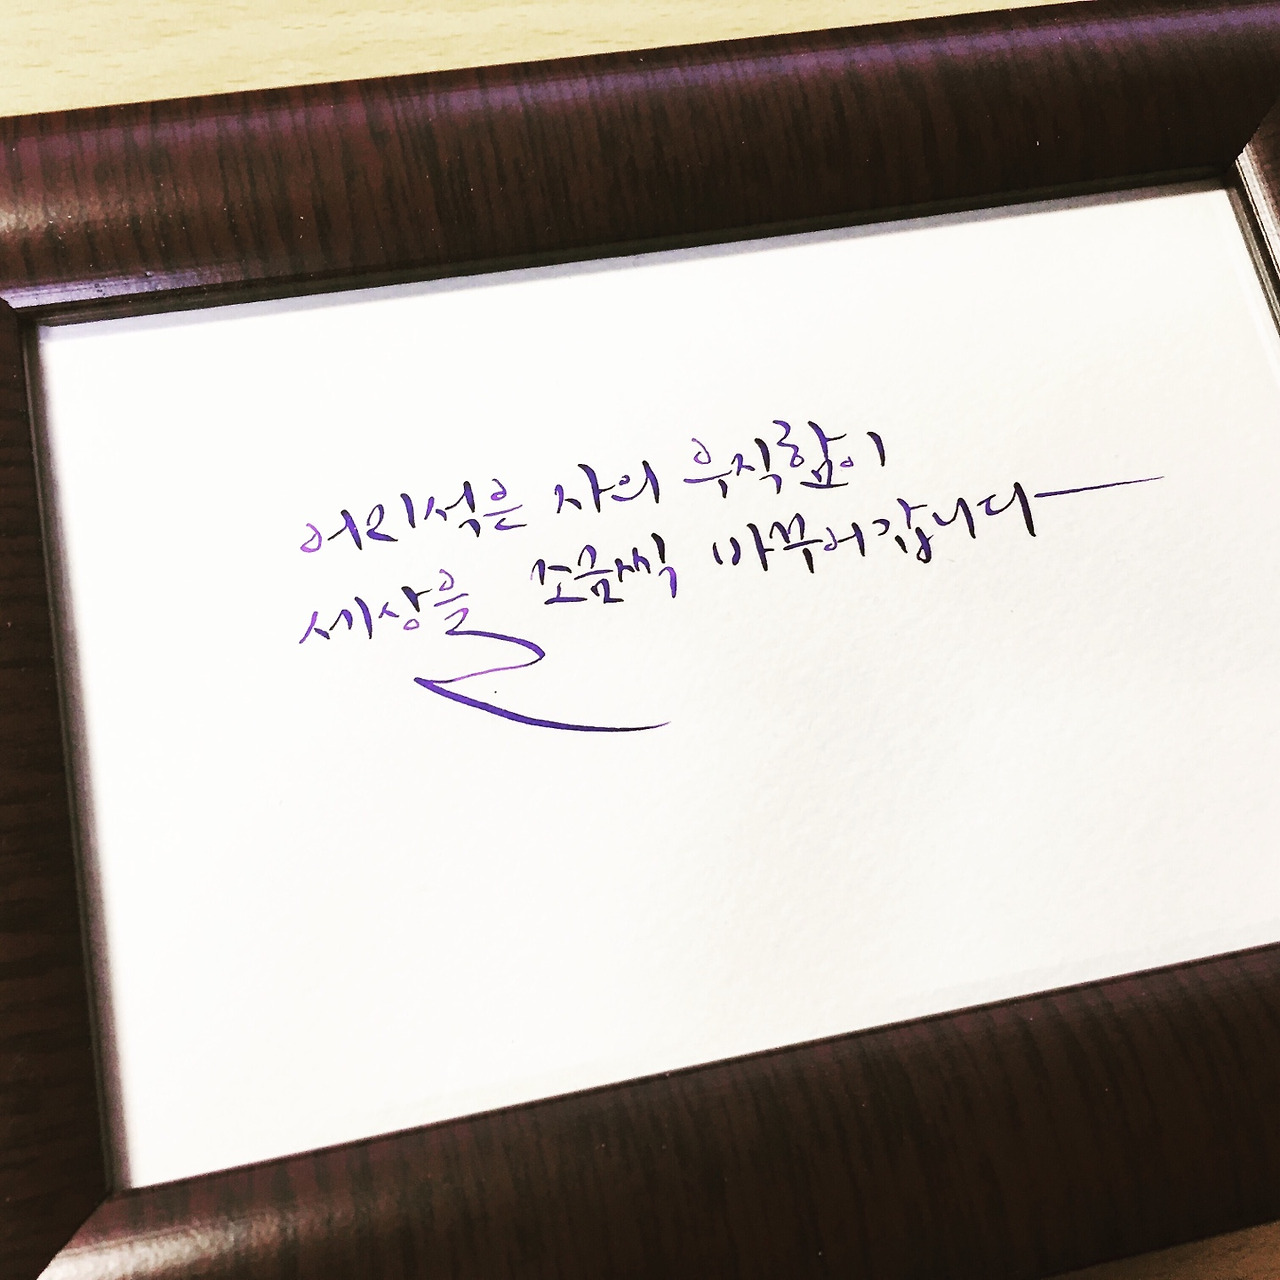 어리석은 자의 우직함이
세상을 조금씩 바꾸어갑니다